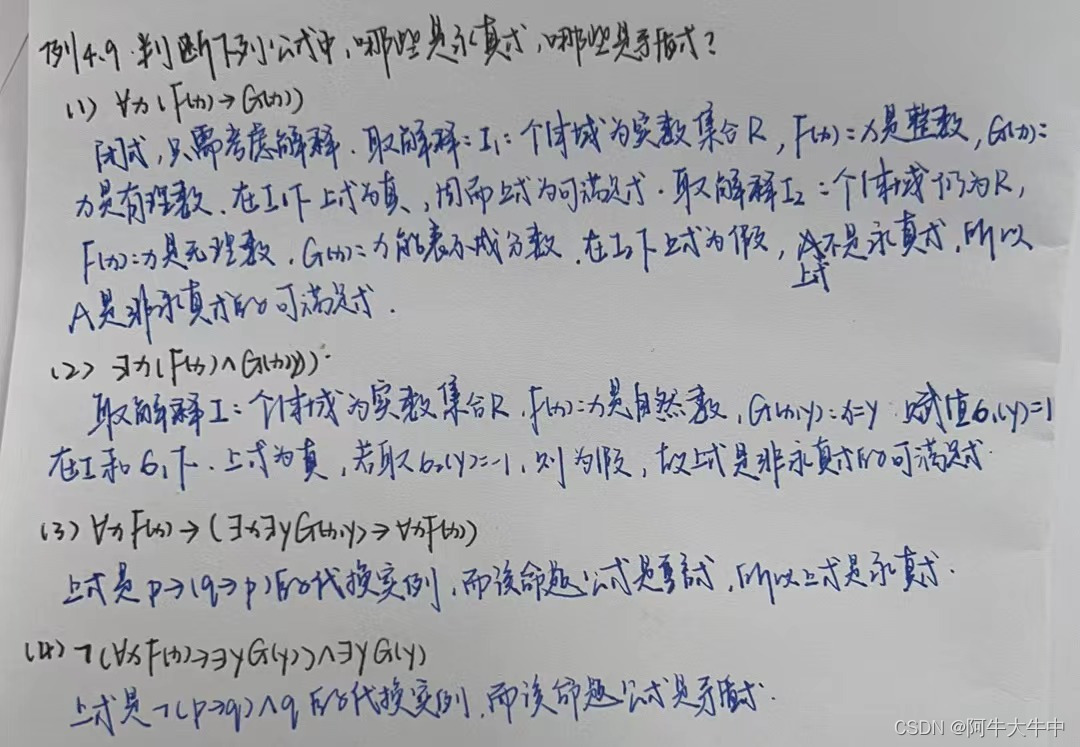 例4.9.判断下列公式中,哪些是永真式,哪些是矛盾式?
(1) ∀x(F(x)→G(x))
闭式,只需考虑解释.取解释:I₁:个体域为实数集合R,F(x):x是整数,G(x):
x是有理数.在I₁下上式为真,因而上式为可满足式.取解释I₂:个体域仍为R,
F(x):x是无理数.G(x):x能表示成分数.在I₂下上式为假,上式不是永真式.所以
A是非永真式的可满足式.
(2) ∃x(F(x)∧G(x,y)).
取解释I:个体域为实数集合R.F(x):x是自然数,G(x,y):x=y 赋值σ₁(y)=1
在I和σ₁下.上式为真,若取σ₂(y)=-1,则为假,故上式是非永真式的可满足式.
(3) ∀xF(x)→(∃x∃yG(x,y)→∀xF(x))
上式是p→(q→p)的代换实例,而该命题公式是重言式,所以上式是永真式.
(4) ¬(∀xF(x)→∃yG(y))∧∃yG(y)
上式是¬(p→q)∧q的代换实例,而该命题公式是矛盾式.
CSDN @阿牛大牛中